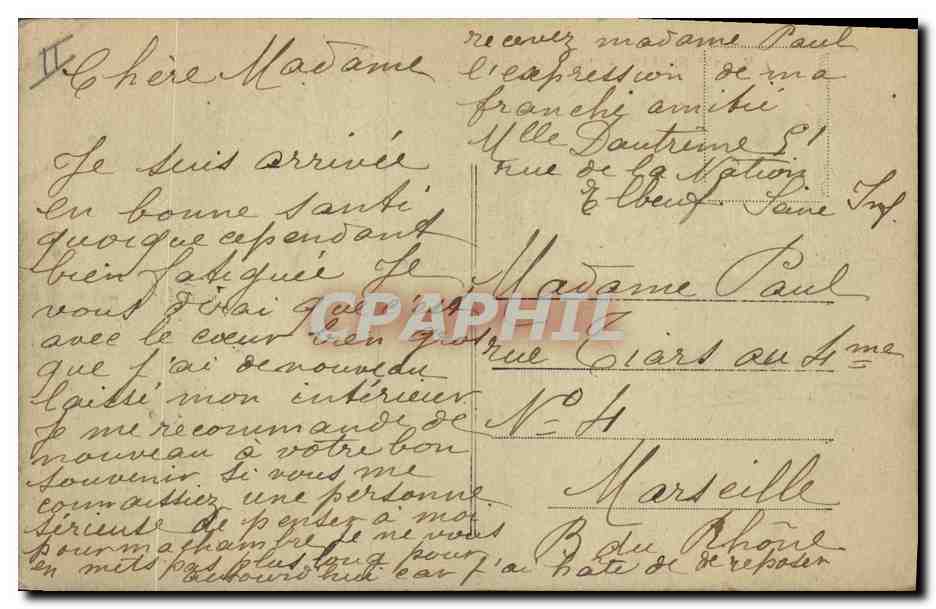 II
Chère Madame
Je suis arrivée
en bonne santé
quoique cependant
bien fatiguée Je
vous dirai que c'est
avec le cœur bien gros
que j'ai de nouveau
laissé mon intérieur
Je me recommande de
nouveau à votre bon
souvenir si vous me
connaissiez une personne
sérieuse de penser à moi
pour ma chambre Je ne vous
en mets pas plus long pour
aujourd'hui car j'ai hate de de reposer
recevez madame Paul
l'expression de ma
franche amitié
Mlle Dautrême 51
rue de la Nation
Elbeuf. Seine Inf.
Madame Paul
rue Tiars au 4me
No 4
Marseille
B du Rhône
CPAPHIL